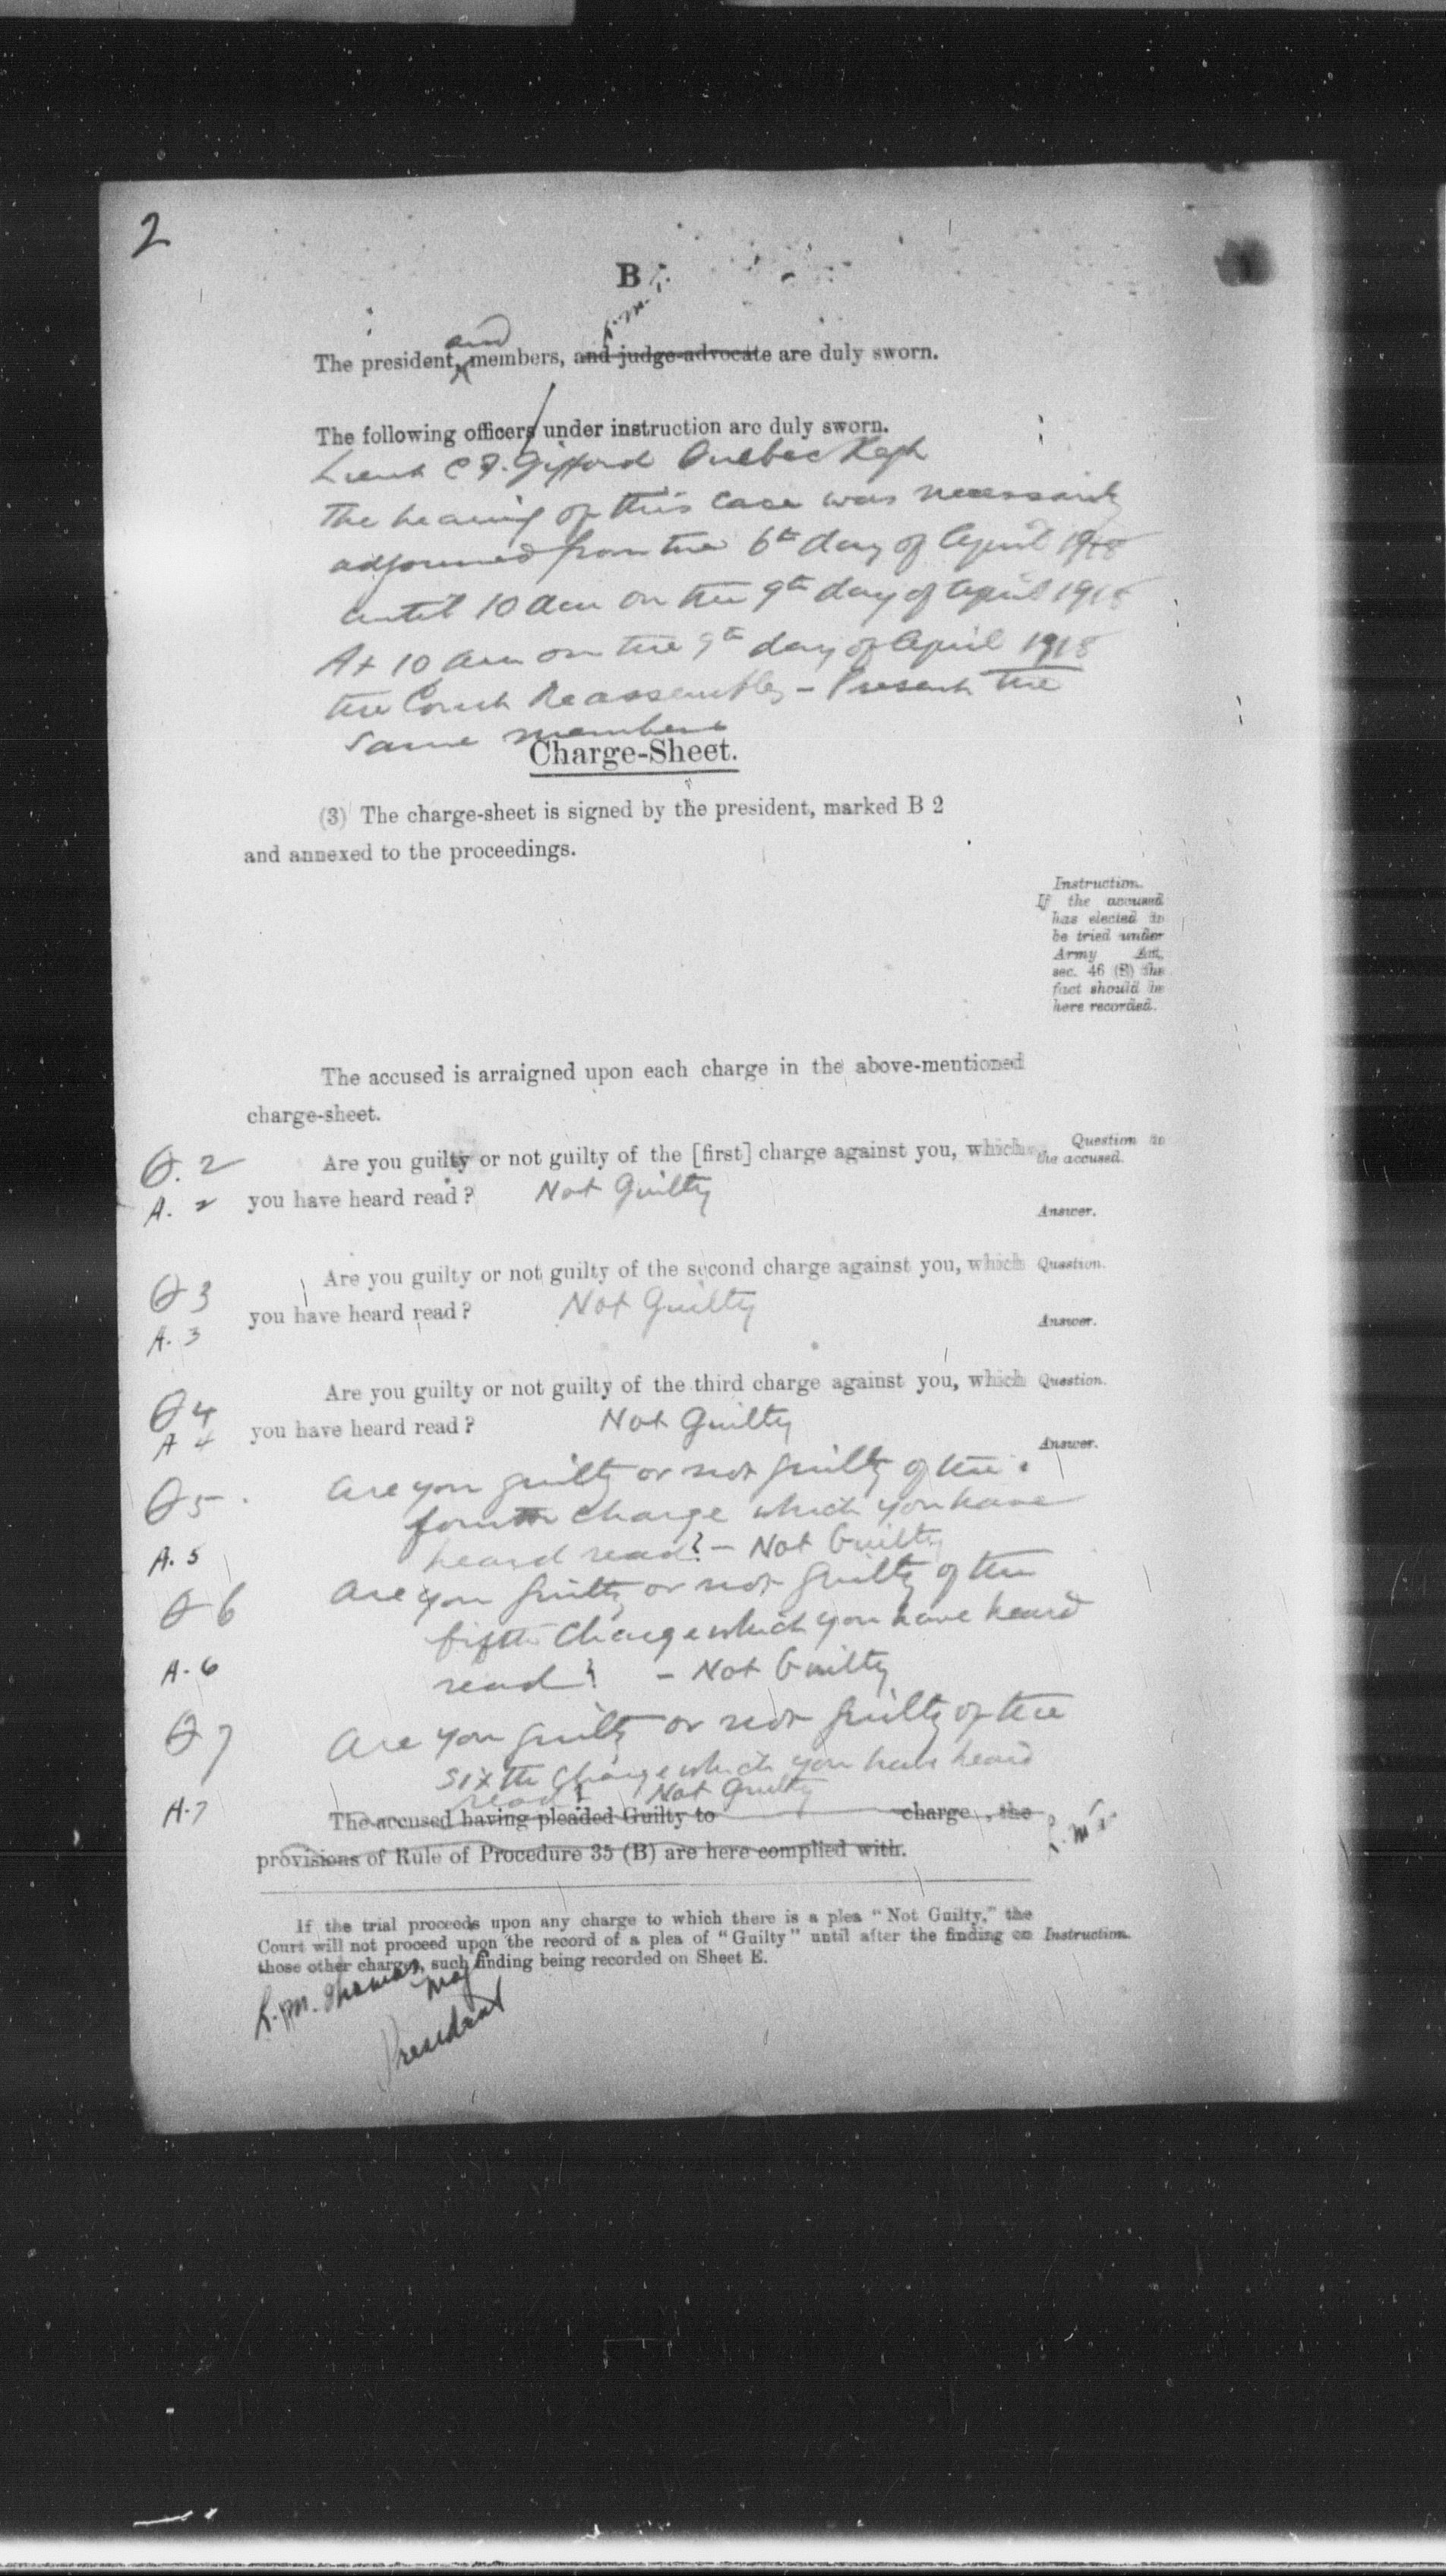 2
B
and
The president, members, and judge-advocate are duly sworn.
The following officers under instruction are duly sworn.
Lieut C F. Gifford Quebec Regt
The hearing of this case was necessarily
adjourned from the 6th day of April 1918
until 10 am on the 9th day of April 1918
At 10 am on the 9th day of April 1918
the Court Reassembles - Present the
same members
Charge-Sheet.
(3) The charge-sheet is signed by the president, marked B 2
and annexed to the proceedings.
Instruction.
If the accused
has elected to
be tried under
Army Act,
sec. 46 (8) the
fact should be
here recorded.
The accused is arraigned upon each charge in the above-mentioned
charge-sheet.
Q. 2 Are you guilty or not guilty of the [first] charge against you, which Question to
the accused.
A. 2 you have heard read? Not Guilty
Answer.
Q 3 Are you guilty or not guilty of the second charge against you, which Question.
A. 3 you have heard read? Not Guilty
Answer.
Q 4 Are you guilty or not guilty of the third charge against you, which Question.
A 4 you have heard read? Not Guilty
Answer.
Q 5. Are you guilty or not guilty of the
fourth charge which you have
A. 5 heard read? - Not Guilty
Q 6 Are you guilty or not guilty of the
fifth Charge which you have heard
A. 6 read? - Not Guilty
Q 7 Are you guilty or not guilty of the
sixth Charge which you have heard
read? Not Guilty
A. 7 The accused having pleaded Guilty to charge , the
provisions of Rule of Procedure 35 (B) are here complied with.
If the trial proceeds upon any charge to which there is a plea "Not Guilty," the
Court will not proceed upon the record of a plea of "Guilty" until after the finding on Instruction.
those other charges, such finding being recorded on Sheet E.
Thomas Maj
President